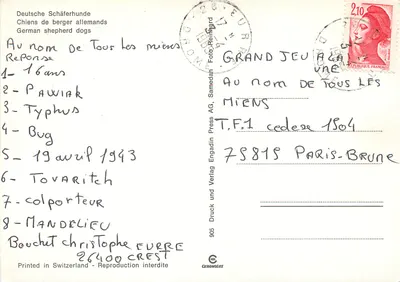 Deutsche Schäferhunde
Chiens de berger allemands
German shepherd dogs
Au nom de Tous les miens
Reponse
1- 16 ans
2- PAWIAK
3- Typhus
4- Bug
5- 19 avril 1943
6- TOVARITCH
7- colporteur
8- MANDELIEU
Bouchet christophe EURRE
26400 CREST
Printed in Switzerland - Reproduction interdite
905 Druck und Verlag Engadin Press AG, Samedan Foto Reinhard
2,10
GRAND JEU A LA
UNE
AU NOM DE TOUS LES
MIENS
T.F.1 cedexe 1904
75815 PARIS-BRUNE